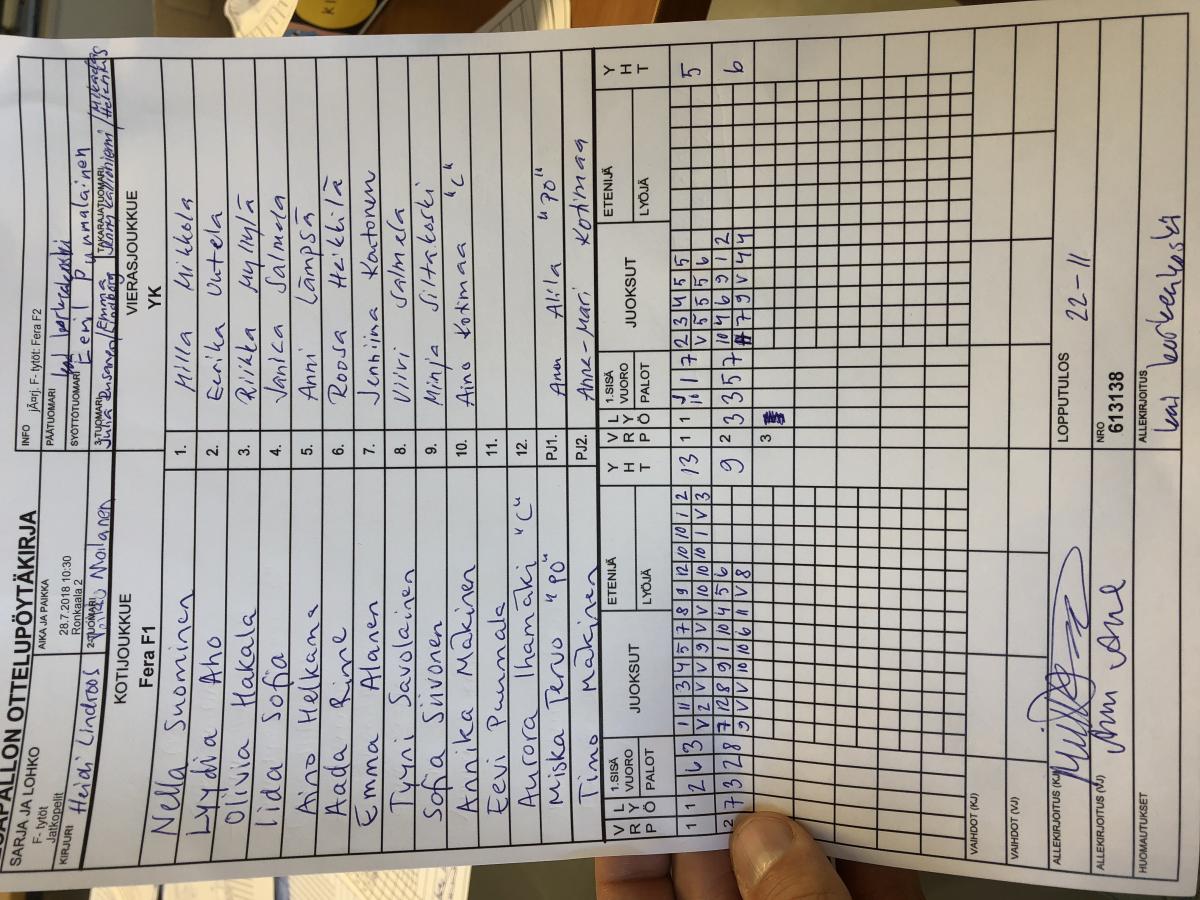 PESÄPALLON OTTELUPÖYTÄKIRJA
SARJA JA LOHKO
F- tytöt
Jatkopelit
AIKA JA PAIKKA
28.7.2018 10:30
Ronkaala 2
INFO jÃ¤rj. F- tytöt: Fera F2
PÄÄTUOMARI
SYÖTTÖTUOMARI Eenil Pummalainen
KIRJURI Heidi Lindroos
2-TUOMARI Moilanen
3-TUOMARI
TAKARAJATUOMARI
KOTIJOUKKUE
Fera F1
VIERASJOUKKUE
YK
Nella Suominen 1. Milla Mikkola
Lyydia Aho 2. Eerika Uutela
Olivia Hakala 3. Riikka Myllylä
Iida Sofia 4. Vanica Salmela
Aino Helkama 5. Anni Lämpsä
Aada Rinne 6. Roosa Heikkilä
Emma Alanen 7. Jenniina Kontonen
Tyyni Savolainen 8. Viivi Salmela
Sofia Siivonen 9. Minja Siltakoski
Annika Mäkinen 10. Aino Kotimaa "C"
Eevi Pummala 11.
Aurora Ihamäki "C" 12.
Miska Tervo "PJ" PJ1. Anu Alila "PJ"
Timo Mäkinen PJ2. Anne-Mari Kotimaa
V R P L Y Ö 1.SISÄ VUORO PALOT JUOKSUT ETENIJÄ LYÖJÄ Y H T V R P L Y Ö 1.SISÄ VUORO PALOT JUOKSUT ETENIJÄ LYÖJÄ Y H T
1 1 2 6 3 1 11 3 4 5 7 8 9 12 10 10 1 2 13 1 1 10 1 7 2 3 4 5 5 5
V 2 V V 9 V V 10 10 10 1 V 3 V 5 5 5 6
2 7 3 2 8 7 12 8 9 1 10 4 5 6 9 2 3 3 5 7 10 4 6 9 1 2 6
9 V V 10 10 6 11 V 8 7 9 V 4 4
3
VAIHDOT (KJ)
VAIHDOT (VJ)
ALLEKIRJOITUS (KJ)
ALLEKIRJOITUS (VJ)
HUOMAUTUKSET
LOPPUTULOS 22-11
NRO
613138
ALLEKIRJOITUS
Kai Korkeakoski